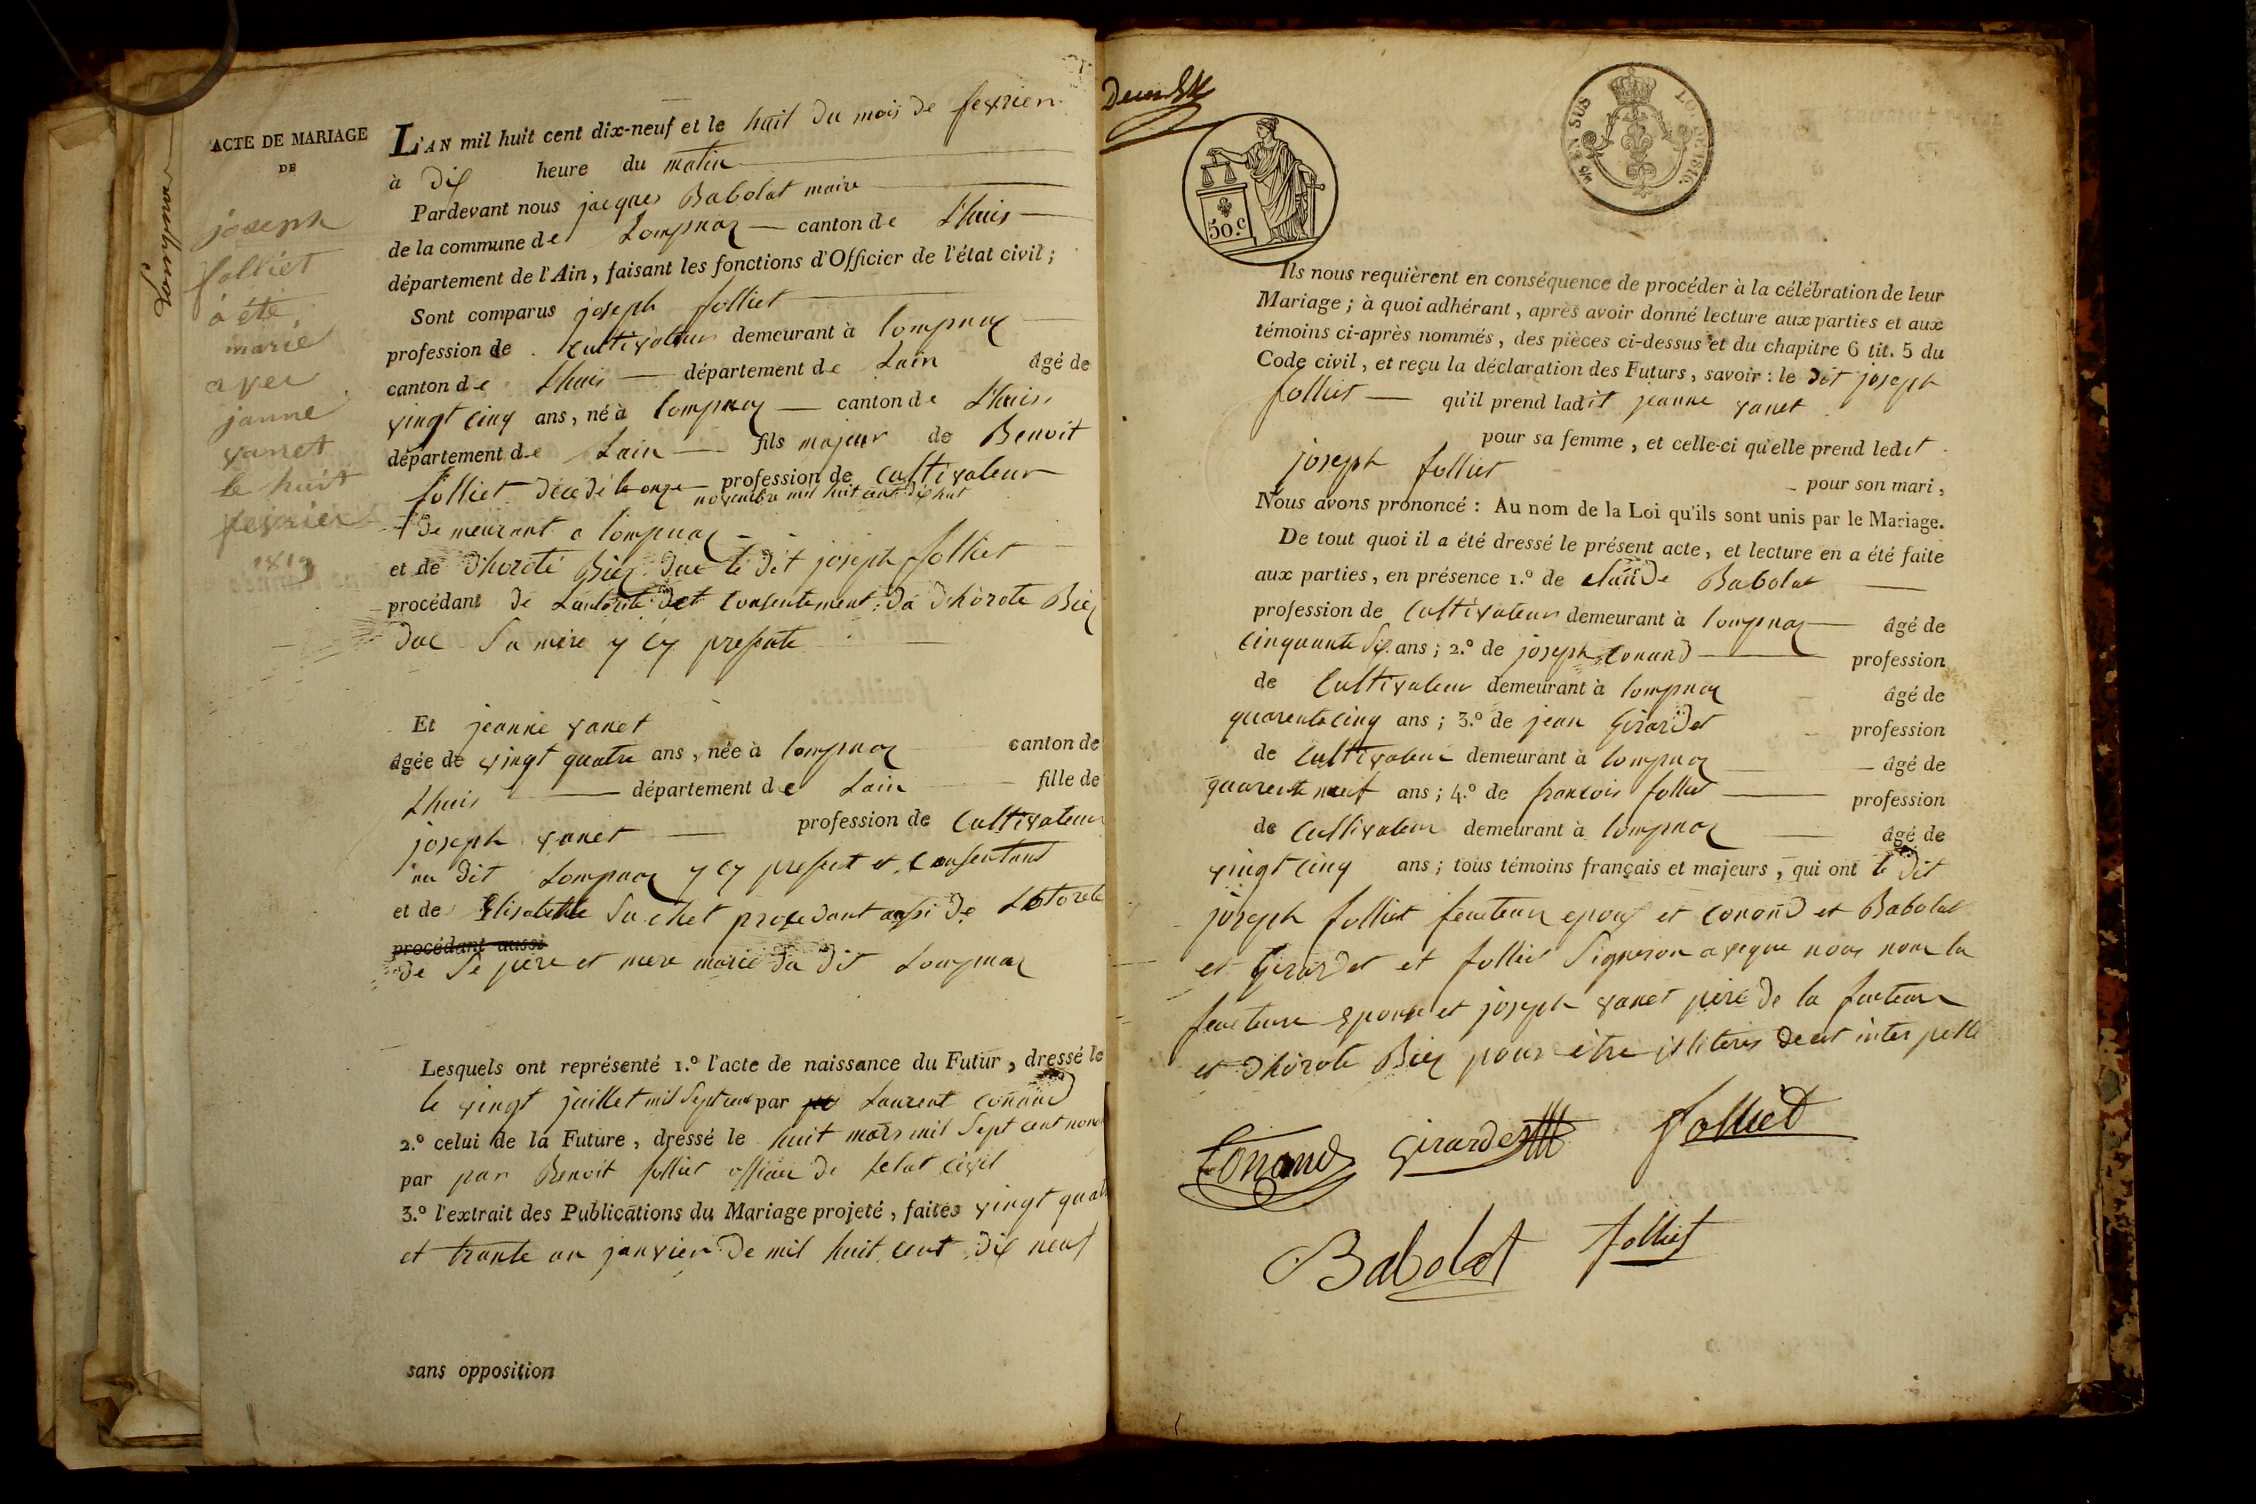 ACTE DE MARIAGE
DE
joseph
folliet
a été
marié
avec
janne
vanet
le huit
fevrier
1819
L'AN mil huit cent dix-neuf et le huit du mois de fevrier
à dix heure du matin
Pardevant nous jacques Babolat maire
de la commune de Lompnaz canton de Lhuis
département de l'Ain, faisant les fonctions d'Officier de l'état civil;
Sont comparus joseph folliet
profession de Cultivateur demeurant à lompnaz
canton de Lhuis département de Lain âgé de
vingt cinq ans, né à lompnaz canton de Lhuis
département de Lain fils majeur de Benoit
folliet décédé le onze profession de Cultivateur
novembre mil huit cent dix huit
demeurant a lompnaz
et de dhoroté Biez duc le dit joseph folliet
procédant de Lautorité et Consentement da dhorote Biez
duc Sa mère y cy presente
Et jeanne vanet
âgée de vingt quatre ans, née à lompnaz canton de
Lhuis département de Lain fille de
joseph vanet profession de Cultivateur
au dit Lompnaz y cy present et Consentant
et de Elisabette Suchet procedant aussi de Lotorete
procédant aussi
de Se père et mere marié du dit Lompnaz
Lesquels ont représenté 1.º l'acte de naissance du Futur, dressé le
le vingt juillet mil Sept cent par Laurent Conand
2.º celui de la Future, dressé le huit mars mil Sept cent nona
par par Benoit folliet officier de letat civil
3.º l'extrait des Publications du Mariage projeté, faites vingt quatr
et trante un janvier de mil huit cent dix neuf
sans opposition
50.c
LOI DE 1816.
Ils nous requièrent en conséquence de procéder à la célébration de leur
Mariage; à quoi adhérant, après avoir donné lecture aux parties et aux
témoins ci-après nommés, des pièces ci-dessus et du chapitre 6 tit. 5 du
Code civil, et reçu la déclaration des Futurs, savoir: le dit joseph
folliet qu'il prend ladit jeanne vanet
pour sa femme, et celle-ci qu'elle prend ledit
joseph folliet
pour son mari,
Nous avons prononcé: Au nom de la Loi qu'ils sont unis par le Mariage.
De tout quoi il a été dressé le présent acte, et lecture en a été faite
aux parties, en présence 1.º de claude Babolat
profession de Cultivateur demeurant à lompnaz âgé de
cinquante Six ans; 2.º de joseph Conand profession
de Cultivateur demeurant à lompnaz âgé de
quarente cinq ans; 3.º de jean Girardet profession
de Cultivateur demeurant à lompnaz âgé de
quarente neuf ans; 4.º de francois folliet profession
de Cultivateur demeurant à lompnaz âgé de
vingt cinq ans; tous témoins français et majeurs, qui ont le dit
joseph folliet feuteur epoux et Conand et Babolat
et Girardet et folliet Signeron aveque nous nom la
feuteure Epouse et joseph vanet père de la feuteure
et dhorote Biez pour être illiteris de ce interpellé
Conand Girardet folliet
Babolat folliet